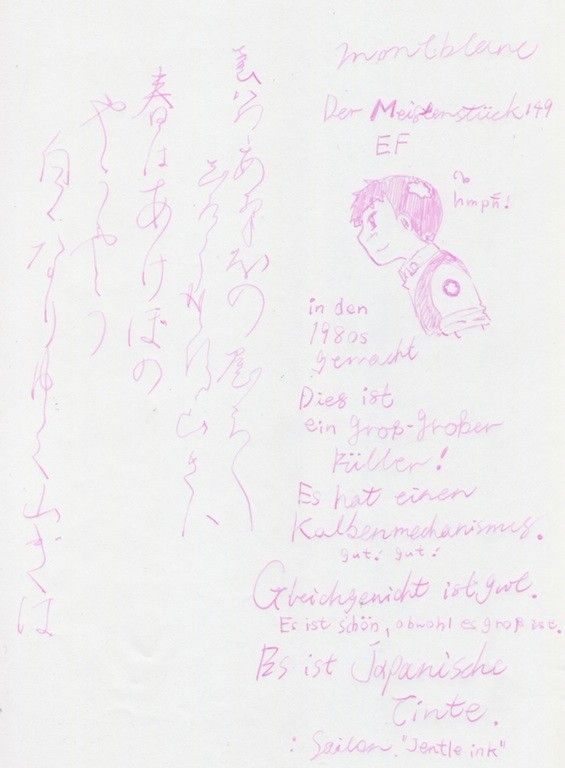 montblanc
Der Meisterstück 149
EF
hmpñ!
in den
1980s
gemacht
Dies ist
ein groß-großer
Füller!
Es hat einen
Kalbenmechanismus.
gut! gut!
Gleichgewicht ist gut.
Es ist schön, obwohl es groß ist.
Es ist Japanische
Tinte.
: Sailor. "Jentle ink"
春はあけぼの
やうやう
白くなりゆく山ぎは